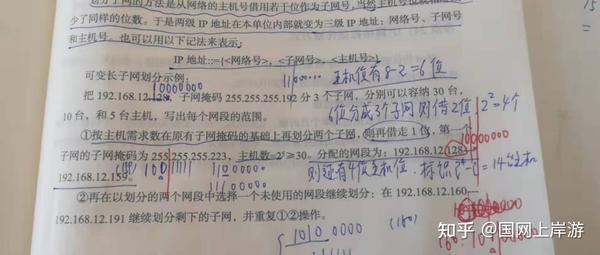 划分子网的方法是从网络的主机号借用若干位作为子网号,当然主机号也就相应减
少了同样的位数。于是两级 IP 地址在本单位内部就变为三级 IP 地址:网络号、子网号
和主机号。也可以用以下记法来表示:
IP 地址::={<网络号>, <子网号>, <主机号>}
可变长子网划分示例:
11000000 主机位有8-2=6位
10000000
把 192.168.12.128, 子网掩码 255.255.255.192 分 3 个子网, 分别可以容纳 30 台,
10 台, 和 5 台主机, 写出每个网段的范围。
6位分成3个子网 则借2位 2²=4个
①按主机需求数在原有子网掩码的基础上再划分两个子网, 则再借走 1 位, 第一个
10000000
子网的子网掩码为 255.255.255.223, 主机数=2⁵≥30. 分配的网段为: 192.168.12.128---
192.168.12.159
11000000
11100000
则还有4位主机位,标识2⁴-2=14台主机
②再在以划分的两个网段中选择一个未使用的网段继续划分: 在 192.168.12.160---
192.168.12.191 继续划分剩下的子网, 并重复①②操作。
1010 0000
(160)
160:
知乎 @国网上岸游